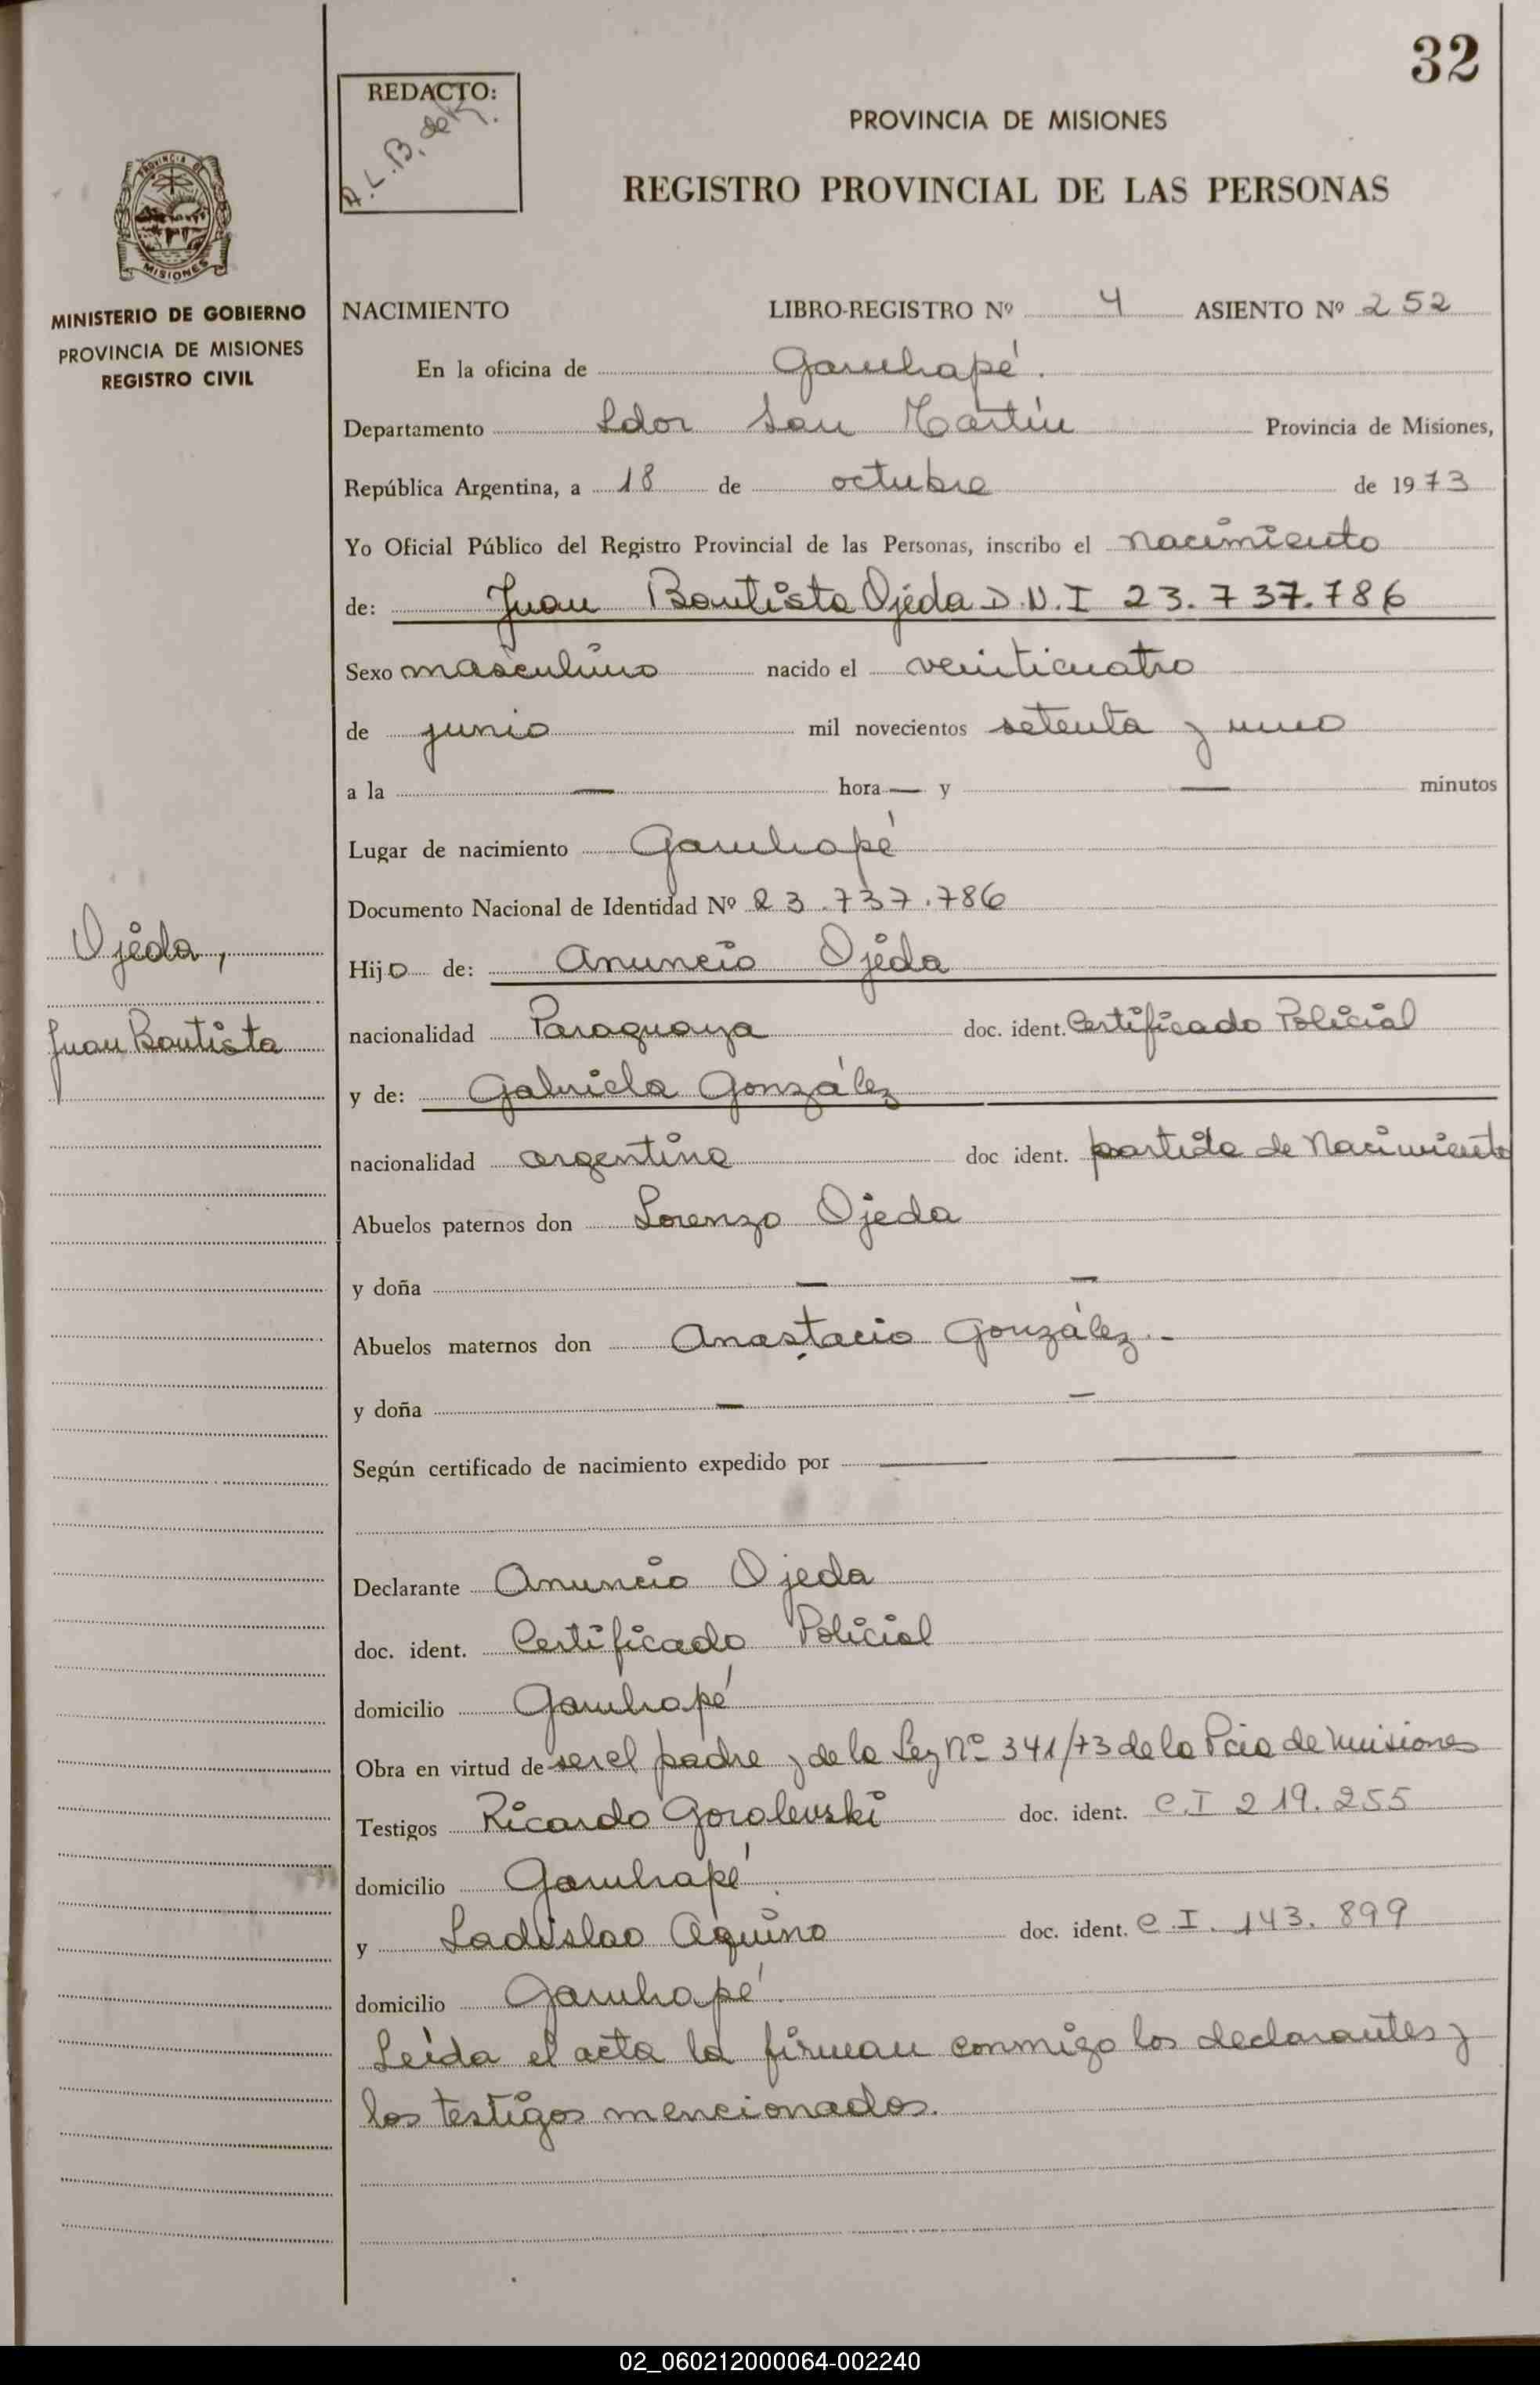 32
REDACTO:
A.L.B. de K.
PROVINCIA DE MISIONES
REGISTRO PROVINCIAL DE LAS PERSONAS
PROVINCIA DE
MISIONES
MINISTERIO DE GOBIERNO
PROVINCIA DE MISIONES
REGISTRO CIVIL
NACIMIENTO LIBRO-REGISTRO Nº 4 ASIENTO Nº 252
En la oficina de Garuhapé.
Departamento Ldor San Martín Provincia de Misiones,
República Argentina, a 18 de octubre de 1973
Yo Oficial Público del Registro Provincial de las Personas, inscribo el nacimiento
de: Juan Bautista Ojeda D.N.I 23.737.786
Sexo masculino nacido el veinticuatro
de junio mil novecientos setenta y uno
a la — hora — y — minutos
Lugar de nacimiento Garuhapé
Documento Nacional de Identidad Nº 23.737.786
Ojeda,
Juan Bautista
Hijo de: Anuncio Ojeda
nacionalidad Paraguaya doc. ident. Certificado Policial
y de: Gabriela González
nacionalidad argentina doc ident. partida de Nacimiento
Abuelos paternos don Lorenzo Ojeda
y doña — —
Abuelos maternos don Anastacio González.-
y doña — —
Según certificado de nacimiento expedido por — — —
Declarante Anuncio Ojeda
doc. ident. Certificado Policial
domicilio Garuhapé
Obra en virtud de ser el padre y de la Ley Nº 341/73 de la Pcia de Misiones
Testigos Ricardo Gorolevski doc. ident. C.I 219.255
domicilio Garuhapé
y Ladislao Aquino doc. ident. C.I. 143.899
domicilio Garuhapé
Leída el acta la firman conmigo los declarantes y
los testigos mencionados.
02_060212000064-002240